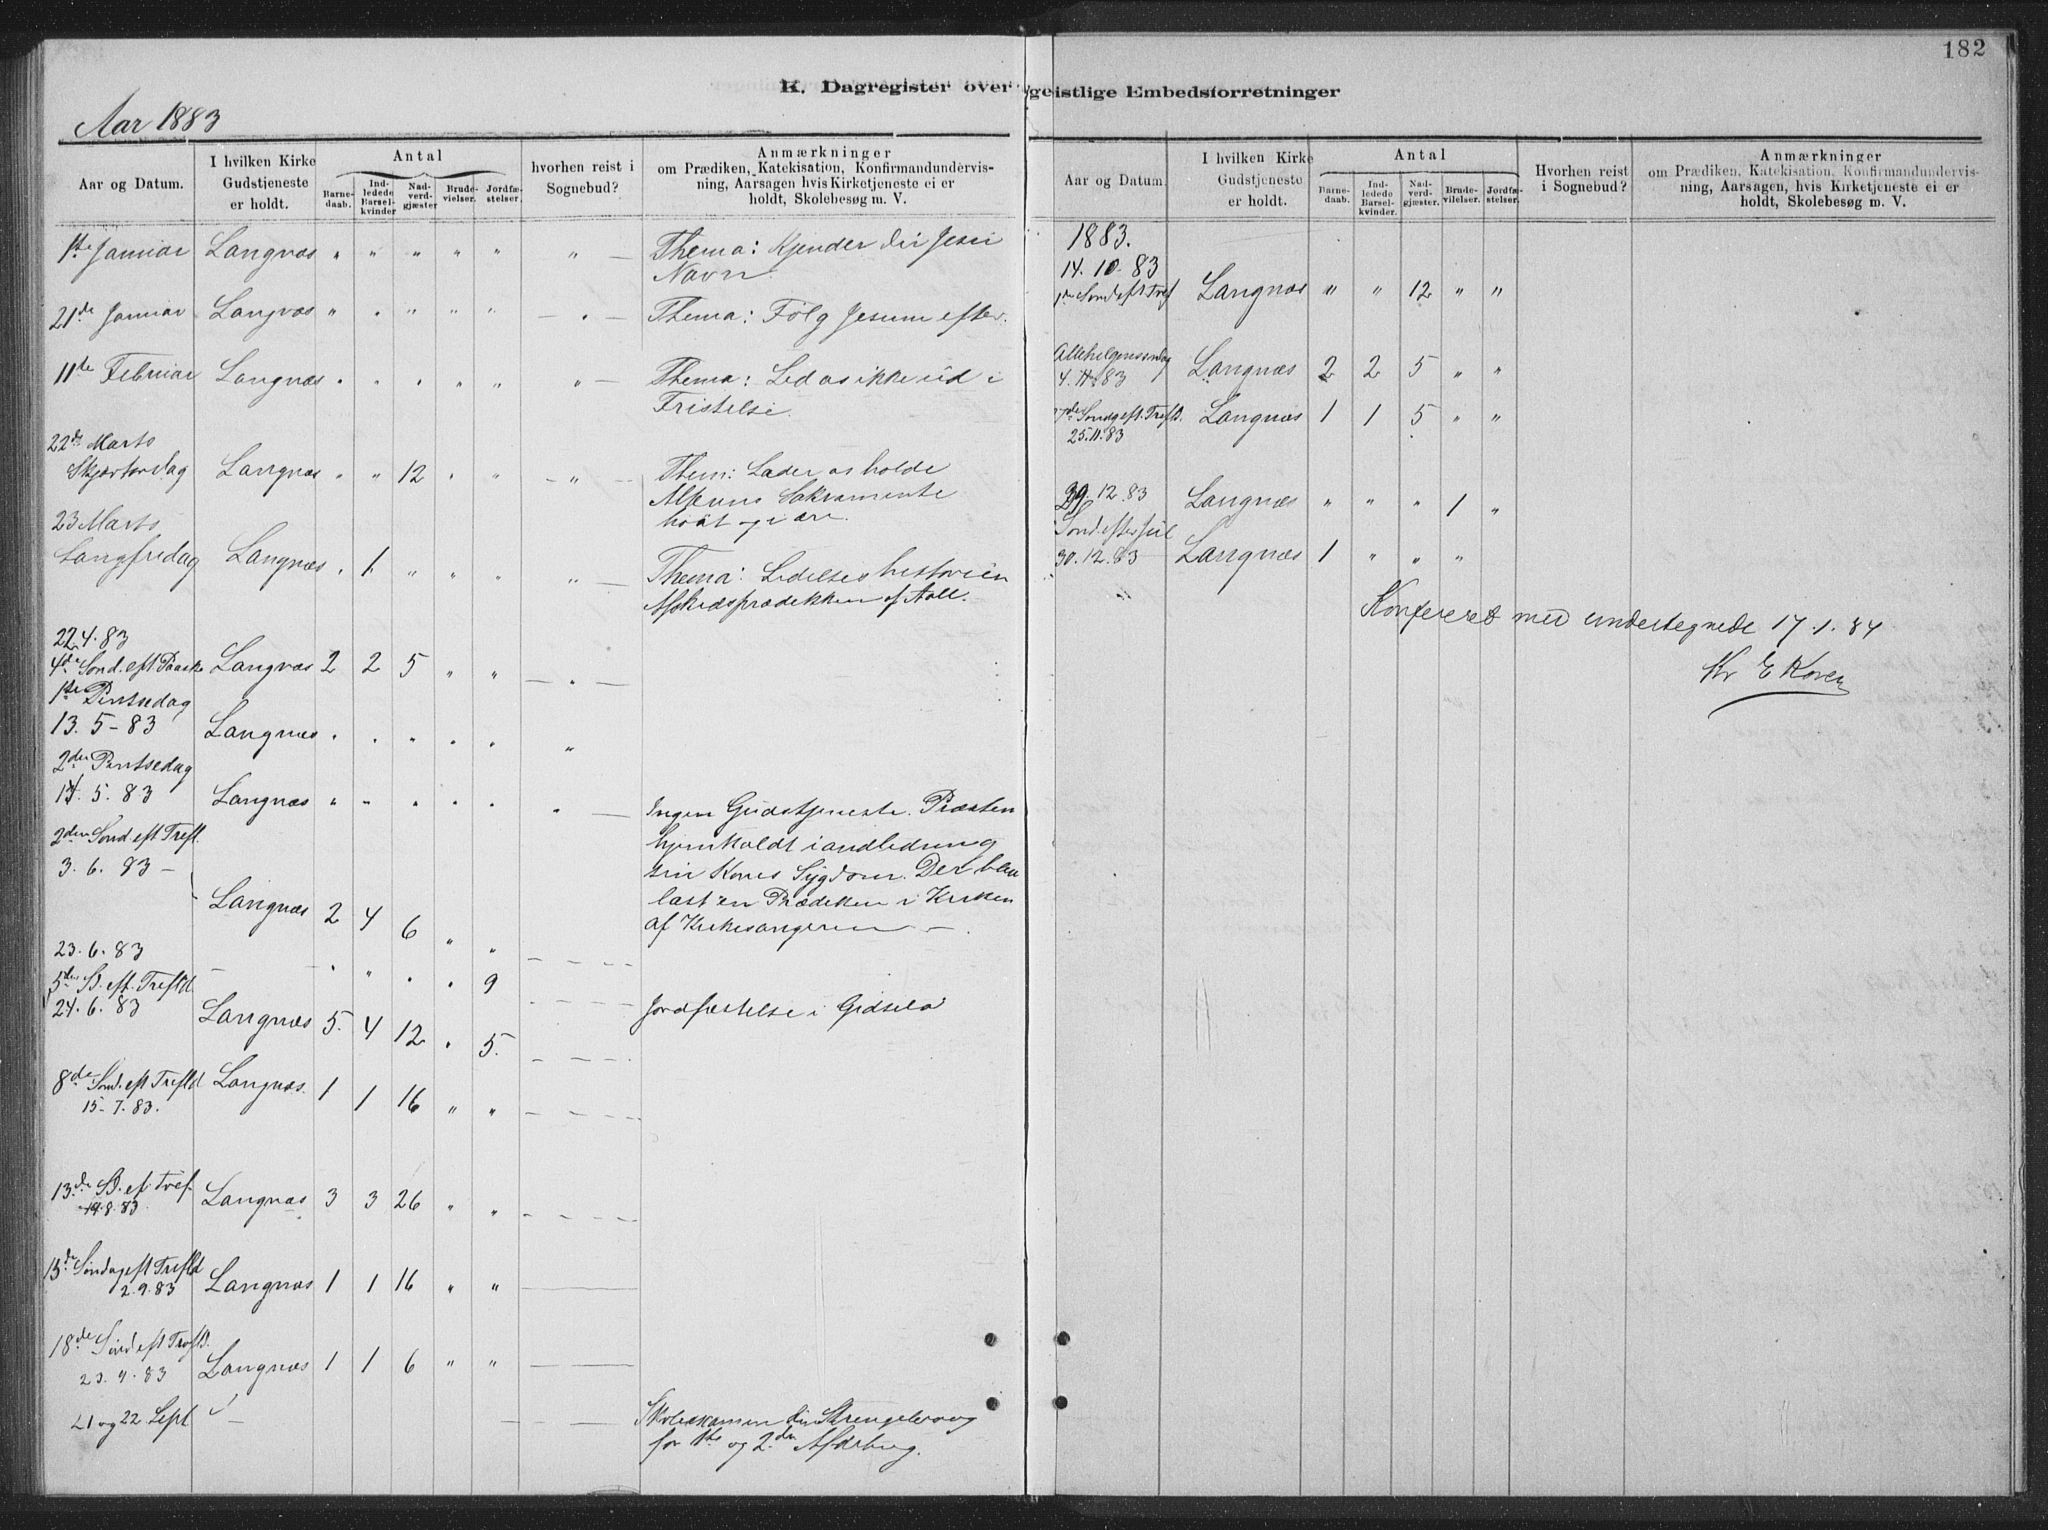 182
K. Dagregister over geistlige Embedsforretninger
Aar 1883
Aar og Datum.
I hvilken Kirke Gudstjeneste er holdt.
Antal
Barnedaab.
Indledede Barselkvinder
Nadverdgjæster
Brudevielser.
Jordfæstelser.
hvorhen reist i Sognebud?
Anmærkninger
om Prædiken, Katekisation, Konfirmandundervisning, Aarsagen hvis Kirketjeneste ei er holdt, Skolebesøg m. V.
1ste Januar Langnæs " " " " " " Thema: Kjender du Jesu
Navn
21de Januar Langnæs " " " " " " Thema: Følg Jesum efter.
11te Februar Langnæs " " " " " " Thema: Led os ikke ud i
Fristelse.
22de Marts
Skjærtorsdag Langnæs " " 12 " " " Them: Lader os holde
Alterens Sakramente
høit og i ære.
23 Marts
Langfredag Langnæs " 1 " " " " Thema: Lidelseshistorien
Afskedsprædikken af Aall.
22.4.83
4de Sond. eft Paaske Langnæs 2 2 5 " " "
1ste Pintsedag
13. 5 - 83 Langnæs " " " " " "
2den Pintsedag
14. 5. 83 Langnæs " " " " " "
Ingen Gudstjeneste. Præsten
2den Sond eft Trefl.
3. 6. 83 -
hjemkaldt i andledning
sin Kones Sygdom. Der blev
læst en Prædiken i Kirken
af Kirkesangeren -
Langnæs 2 4 6 " "
23. 6. 83 - " " " " 9
Jordfæstelse i
5de S. eft. Trefld
24. 6. 83 Langnæs 5. 4 12 " 5.
8de Sond. eft Trefld Langnæs 1 1 16 " "
15-7.83.
13de S. ef. Tref. Langnæs 3 3 26 " "
19.8.83
15de Søndag eft Trefld Langnæs 1 1 16 " "
2.9.83
18de Sond eft Trefld. Langnæs 1 1 6 " "
21 og 22 Sept -
for 1ste og 2den
Aar og Datum.
I hvilken Kirke Gudstjeneste er holdt.
Antal
Barnedaab.
Indledede Barselkvinder.
Nadverdgjæster.
Brudevielser.
Jordfæstelser.
Hvorhen reist i Sognebud?
Anmærkninger
om Prædiken, Katekisation, Konfirmandundervisning, Aarsagen, hvis Kirketjeneste ei er holdt, Skolebesøg m. V.
1883.
14. 10. 83
Sond eft Tref Langnæs " " 12 " "
Allehelgensondag
4. 11. 83 Langnæs 2 2 5 " "
27de Sondg eft. Trefld. Langnæs 1 1 5 " "
25.11.83
29. 12. 83 Langnæs " " " 1 "
Sond efter Jul
30. 12. 83 Langnæs 1 " " "
Konfereret med undertegnede 17. 1. 84
Kr E Koren